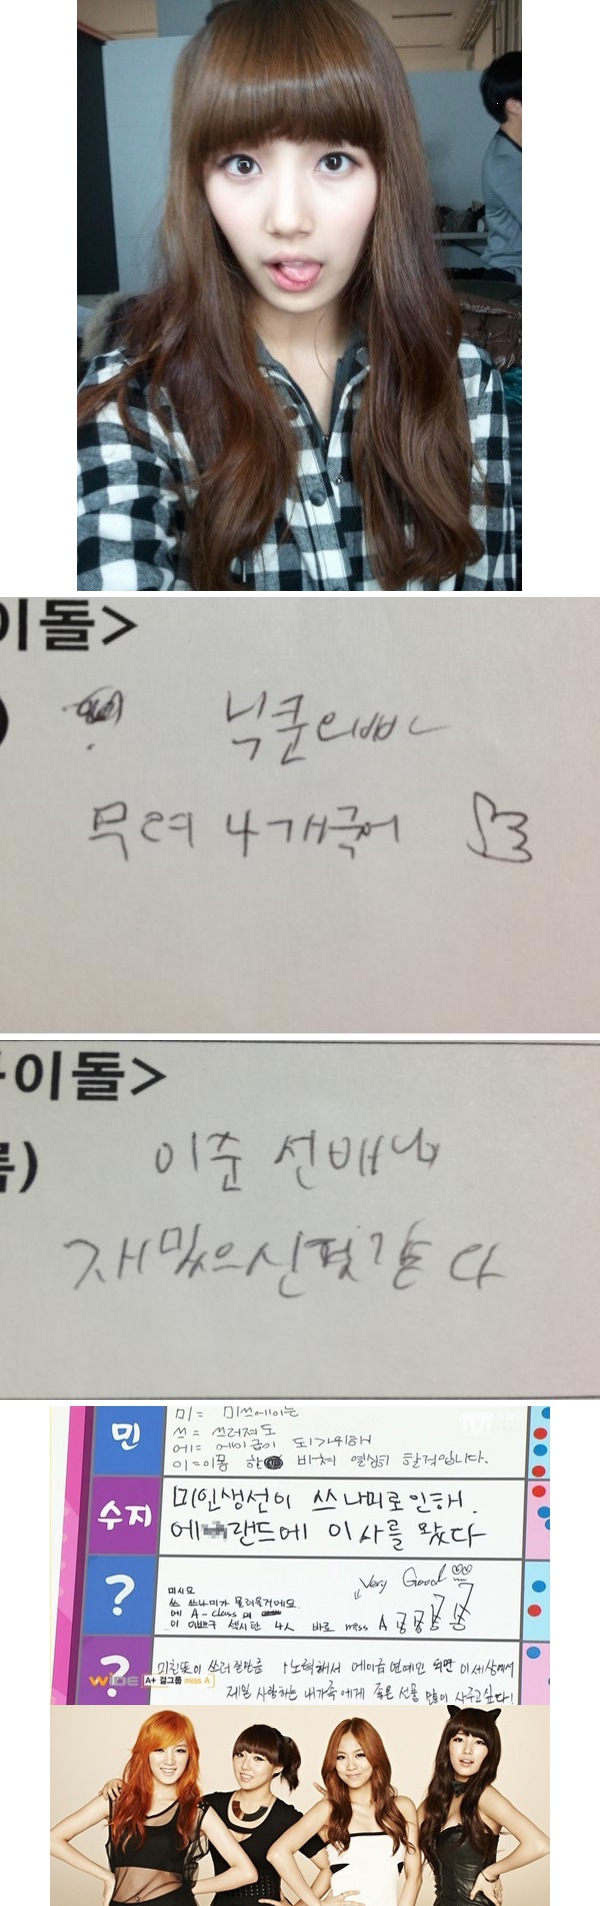 이돌>
닉쿤오빠
무려 4개국어
아이돌>
름)
이준 선배님
재밌으신것같다
민
미= 미쓰에이는
쓰= 쓰러져도
에= 에이급이 되기위해
이=이몸 바쳐 열심히 할것입니다.
수지
미인생선이 쓰나미로인해.
에 랜드에 이사를 왔다
?
Very Good
미시요
쓰 쓰나미가 몰려올거에요.
에 A-class의
이 이쁘구 섹시한 4人 바로 miss A
?
미친듯이 쓰러질만큼 노력해서 에이급 연예인 되면 이세상에서
제일 사랑하는 내가족에게 좋은 선물 많이 사주고싶다!
WIDE A+ 걸그룹 miss A